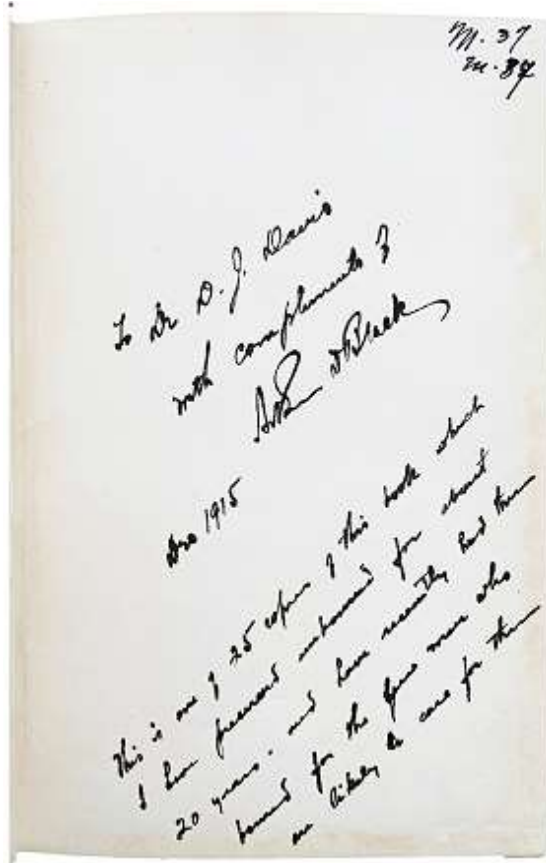 M. 37
M. 87
To Dr D. J. Davis
with compliments of
Arthur D Black
Dec 1915
This is one of 25 copies of this book which
I have preserved unbound for about
20 years. and have recently had them
bound for the few men who
are likely to care for them